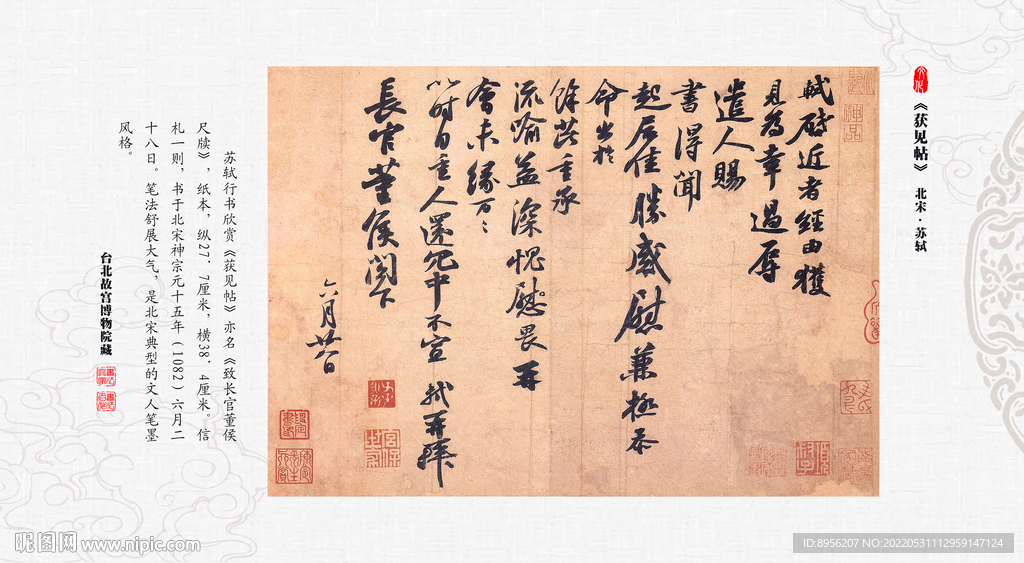 文化
《获见帖》 北宋·苏轼
軾啟近者經由獲
見為幸過辱
遣人賜
書得聞
起居佳勝感慰兼極忝
命出於
餘芘重承
流喻益深愧慰畏再
會未緣万〻
以時自重人還冗中不宣 軾再拜
長官董侯閣下
六月廿八日
苏轼行书欣赏《获见帖》亦名《致长官董侯
尺牍》，纸本，纵27．7厘米，横38．4厘米。信
札一则，书于北宋神宗元十五年（1082）六月二
十八日。笔法舒展大气，是北宋典型的文人笔墨
风格。
台北故宫博物院藏
昵图网 www.nipic.com
ID:8956207 NO:20220531112959147124